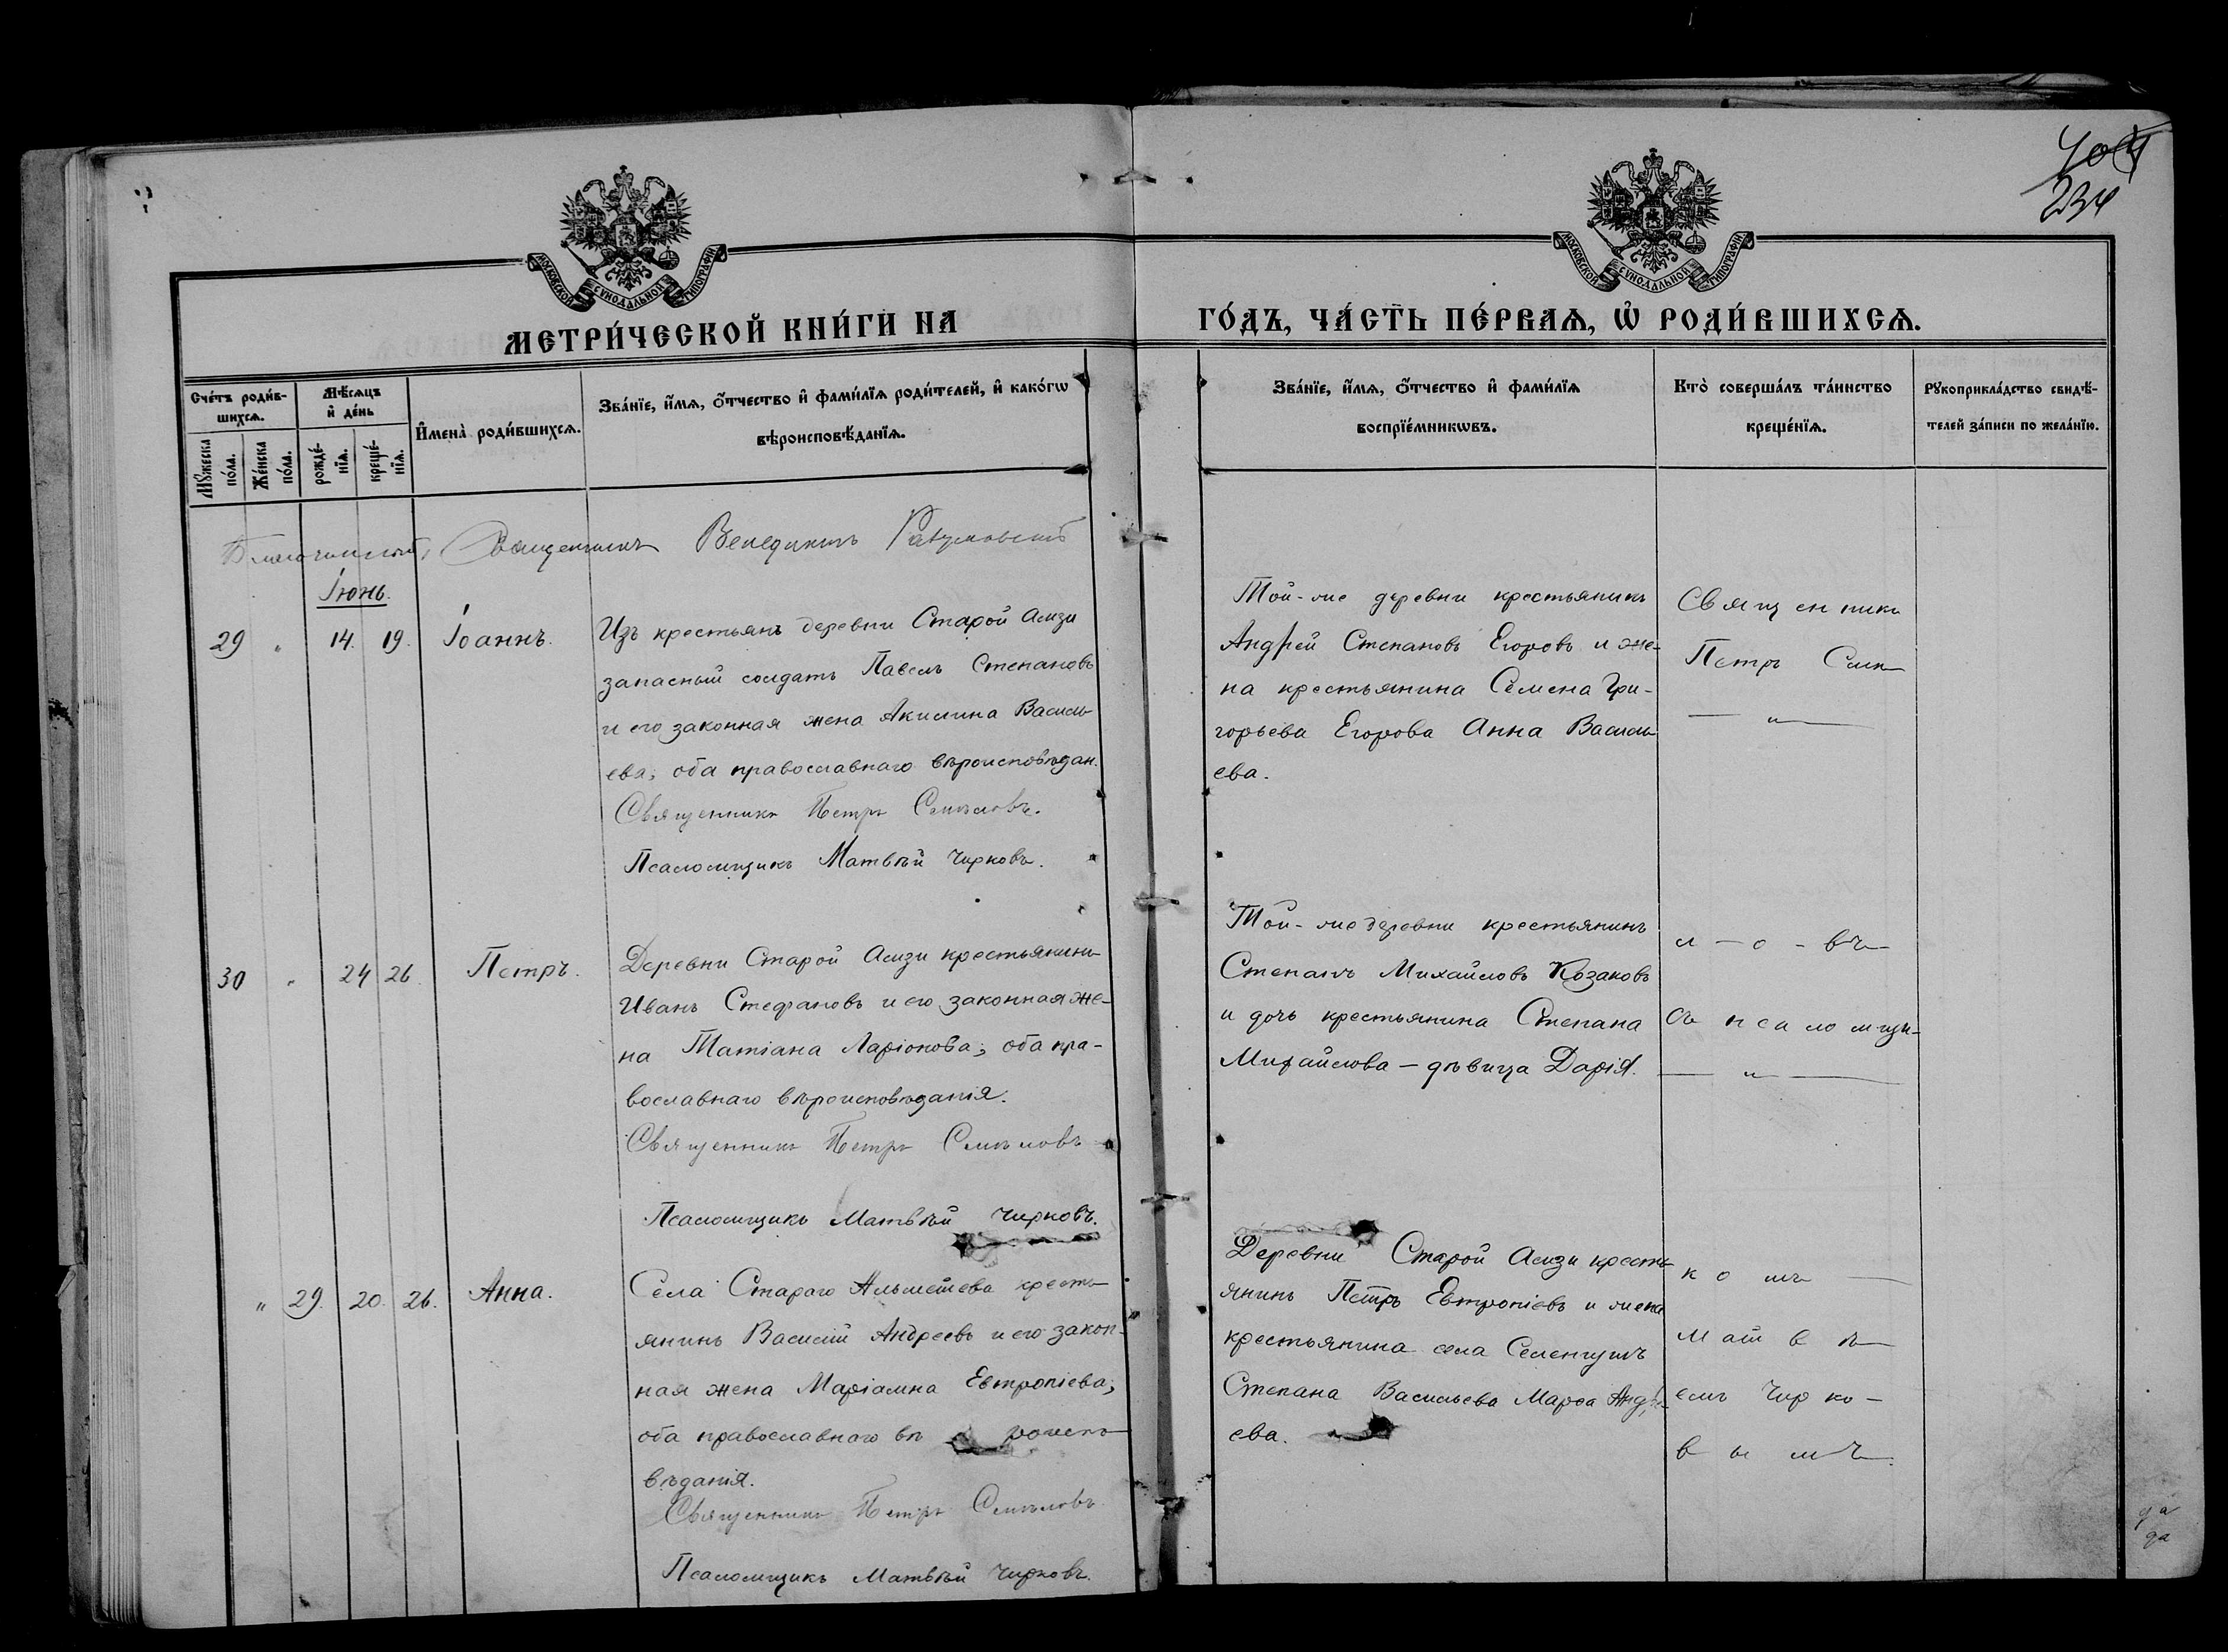 404
234
МОСКОВСКОЙ СѴНОДАЛЬНОЙ ТИПОГРАФІИ
МОСКОВСКОЙ СѴНОДАЛЬНОЙ ТИПОГРАФІИ
МЕТРИ́ЧЕСКОЙ КНИ́ГИ НА
ГО́ДЪ, ЧА́СТЬ ПЕ́РВАѦ, Ѡ҆ РОДИ́ВШИХСѦ.
Сче́тъ роди́в-
шихсѧ.
Мꙋ́жеска
по́ла.
Же́нска
по́ла.
Мѣ́сѧцъ
и҆ де́нь
рожде́-
нїѧ.
креще́-
нїѧ.
И҆мена̀ роди́вшихсѧ.
Зва́нїе, и҆́мѧ, ѻ҆́тчество и҆ фами́лїѧ роди́телей, и҆ како́гѡ
вѣроисповѣ́данїѧ.
Зва́нїе, и҆́мѧ, ѻ҆́тчество и҆ фами́лїѧ
воспрїе́мникѡвъ.
Кто̀ соверша́лъ та́инство
креще́нїѧ.
Рꙋкоприкла́дство свидѣ́-
телей за́писи по жела́нїю.
Благочинный, Священникъ Венедиктъ
Іюнь.
29 " 14. 19. Іоаннъ.
Изъ крестьянъ деревни Старой Амзи
запасный солдатъ Павелъ Степановъ
и его законная жена Акилина Василь-
ева, оба православнаго вѣроисповѣдан.
Священникъ Петръ Смѣловъ.
Псаломщикъ Матвѣй Чирковъ.
Той-же деревни крестьянинъ
Андрей Степановъ Егоровъ и же-
на крестьянина Семена Гри-
горьева Егорова Анна Василь-
ева.
Священникъ
Петръ Смѣ
— " —
30 " 24 26. Петръ.
Деревни Старой Амзи крестьянинъ
Иванъ Стефановъ и его законная же-
на Татіана Ларіонова; оба пра-
вославнаго вѣроисповѣданія.
Священникъ Петръ Смѣловъ
Псаломщикъ Матвѣй Чирковъ.
Той-же деревни крестьянинъ
Степанъ Михайловъ Козаковъ
и дочь крестьянина Степана
Михайлова — дѣвица Дарія.
л — о - въ
Съ псаломщи-
— " —
" 29. 20. 26. Анна.
Села Стараго Альметева кресть-
янинъ Василій Андреевъ и его закон-
ная жена Маріамна Евтропіева;
оба православнаго вѣ роиспо-
вѣданія.
Священникъ Петръ Смѣловъ
Псаломщикъ Матвѣй Чирковъ.
Деревни Старой Амзи кресть-
янинъ Петръ Евтропіевъ и жена
крестьянина села Селенгушъ
Степана Васильева Марѳа Андре-
ева.
к о мъ —
Матвѣ
емъ Чирко-
в ы мъ.
да
да